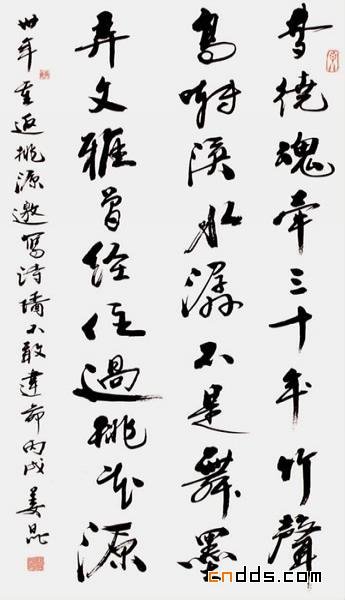 梦绕魂牵三十年竹聲
鳥啭溪水潺不是舞墨
弄文雅曾经住過桃花源
卅年重返桃源邀寫诗墙不敢違命丙戌姜昆
cndds.com